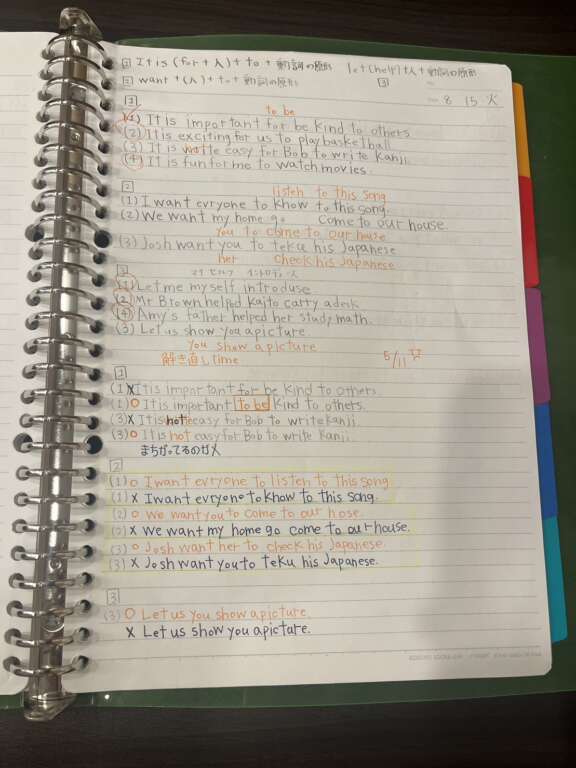 1 It is (for+人)+to+動詞の原形 let(help)+人+動詞の原形
2 want+(人)+to+動詞の原形 3
8 15 火
1
to be
(1) It is important for be kind to others
(2) It is exciting for us to play basketball
(3) It is easy for Bob to write kanji.
(4) It is fun for me to watch movies.
2
listen to this song
(1) I want evryone to khow to this song.
(2) We want my home go come to our house.
you to come to our house
(3) Josh want you to teku his Japanese
her check his Japanese
3
(1) Let me myself introduse
(2) Mr Brown helped Kaito carry a desk
(4) Amy's father helped her study math.
(3) Let us show you a picture
you show a picture
解き直しtime 5/11
1
(1) x It is important for be kind to others.
(1) o It is important to be kind to others.
(3) x It is easy for Bob to write kanji.
(3) o It is not easy for Bob to write kanji
まちがってるのが人
2
(1) o I want evryone to listen to this song
(1) x I want evryone to khow to this song.
(2) o We want you to come to our hose.
(2) x We want my home go come to our house.
(3) o Josh want her to check his Japanese.
(3) x Josh want you to teku his Japanese.
3
(3) o Let us you show a picture.
x Let us show you a picture.